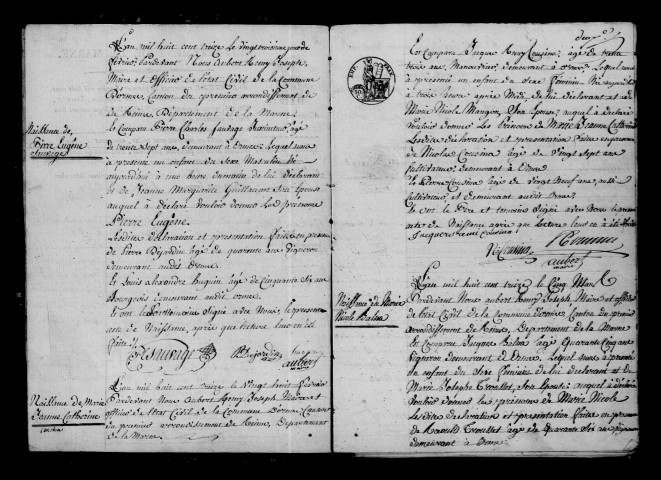 L'an mil huit cent treize le vingt troisieme jour de
fevrier, pardevant Nous Aubert Remy Joseph
Maire et Officier de l'état Civil de la Commune
Dorme, Canton du premier arrondissement
de Reims, Département de la Marne.
Est Comparu Pierre Charles Sauvage agé
de trente Sept ans, demeurant à Orme, Lequel nous
a presenté un enfant du Sexe Masculin né
aujourdhui à une heure du matin de lui déclarant
et de Jeanne Marguerite Guillaume Son Epouse
auquel a déclaré vouloir donner Les prénoms
Pierre Eugène.
Lesdites déclaration et présentation faites en présence
de Pierre Dejardin agé de quarante ans Vigneron
demeurant audit Orme.
Et Louis Alexandre Huguin agé de Cinquante Six ans
Bourgeois demeurant audit Orme.
Et ont Signé avec Nous le present
acte de Naissance, après que lecture leur en est
faite
Sauvage Dejardin
aubert
maire
Naissance de
Pierre Eugène
Sauvage
L'an mil huit cent treize le vingt huit fevrier
Pardevant Nous Aubert Remy Joseph Maire et
officier de l'état Civil de la Commune Dorme, Canton
du premier arrondissement de Reims, Département
de la Marne
Naissance de Marie
Jeanne Catherine
Cousina
Est Comparu Jacque Remy Cousina, agé de trente
trois ans Manouvrier, demeurant à Orme, Lequel nous
a présenté un enfant du Sexe Feminin Né aujourdhui
à trois heure après Midi, de lui déclarant et de
Marie Nicole Mangon, Son Epouse, auquel a déclaré
Vouloir donner Les Prénoms de Marie Jeanne Catherine
Lesdites déclaration et présentation faites en présence
de Nicolas Cousina agé de Vingt Sept ans
Cultivateur, demeurant à Orme
Et Pierre Cousina agé de Vingt Neuf ans, aussi
Cultivateur, et demeurant audit Orme.
Et ont le Père et temoins Signé avec Nous le present
acte de Naissance après que Lecture leur en a été faite
Jacque remi cousina
N Cousina
aubert
maire
L'an mil huit cent treize le Cinq Mars
Pardevant Nous aubert Remy Joseph Maire et officier
de l'état Civil de la Commune Dorme, Canton du premier
arrondissement de Reims, Département de la Marne
Est Comparu Jacques Balva agé Quarante Cinq ans
Vigneron demeurant à Orme, Lequel nous a présenté
un enfant du Sexe Feminin de lui declarant et de
Marie Josephe Trouillet, Son Epouse, auquel a déclaré
Vouloir donner Les prénoms de Marie Nicole
Lesdites déclaration et présentation faites en présence
de Trouillet agé de Quarante Six ans Vigneron
demeurant à Orme.
Naissance de Marie
Nicole Balva